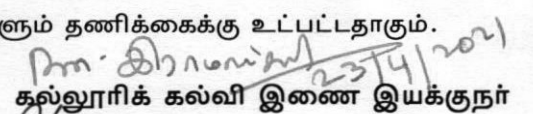 ளும் தணிக்கைக்கு உட்பட்டதாகும்.
இராமசாமி 23/4/2021
கல்லூரிக் கல்வி இணை இயக்குநர்